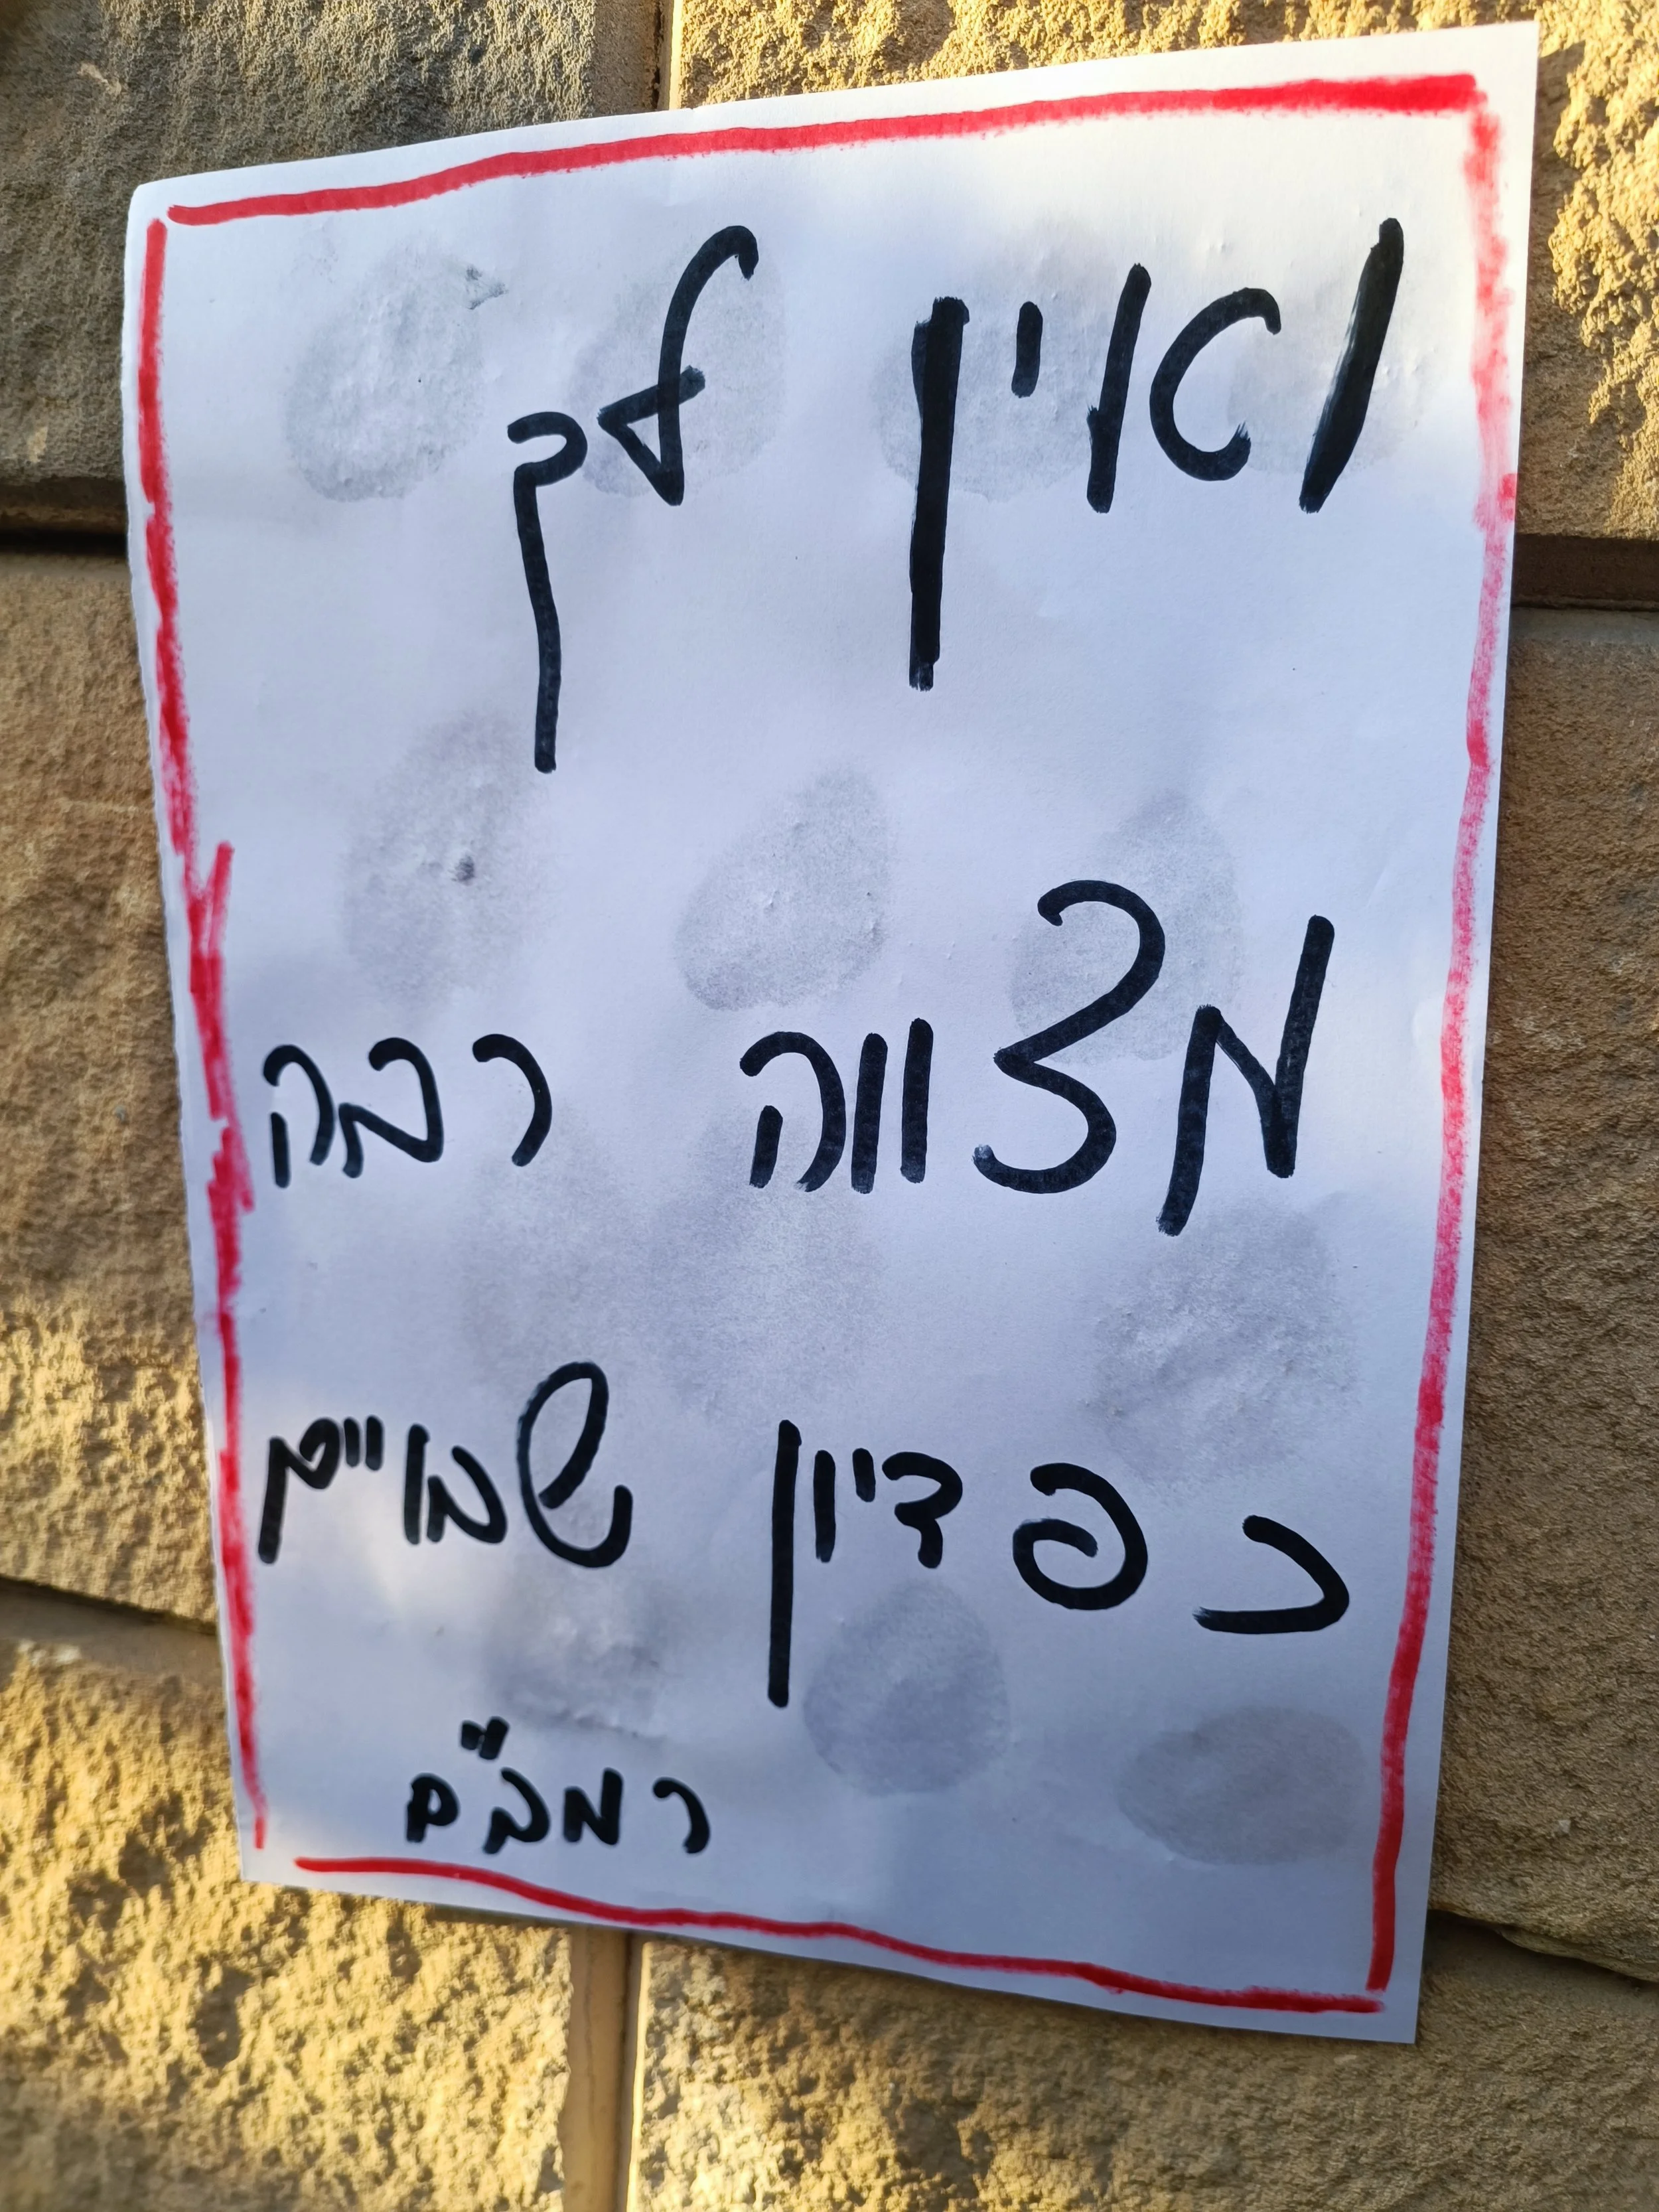 ואין לך
מצווה רבה
כפדיון שבויים
רמב"ם